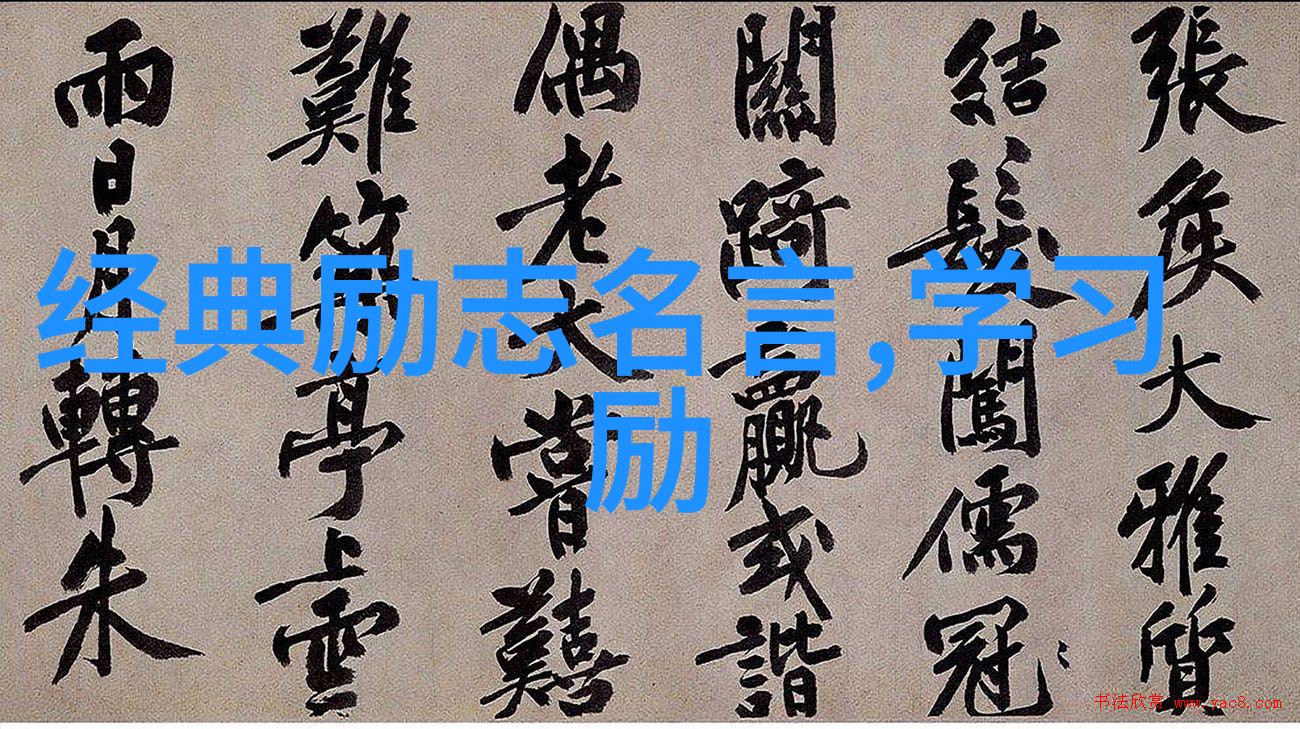 经典励志名言,学习
励
張侯大雅質
結髮闖儒冠
關踦贏或諧
偶老大嘗囏
難亭上雲
雨日月轉朱
书法欣赏 www.yac8.com